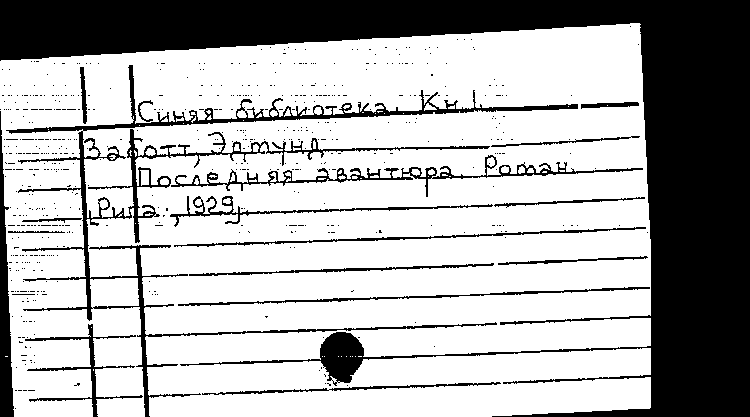 Синяя библиотека. Кн. 1.
Заботт, Эдмунд
Последняя авантюра. Роман.
[Рига, 1929].